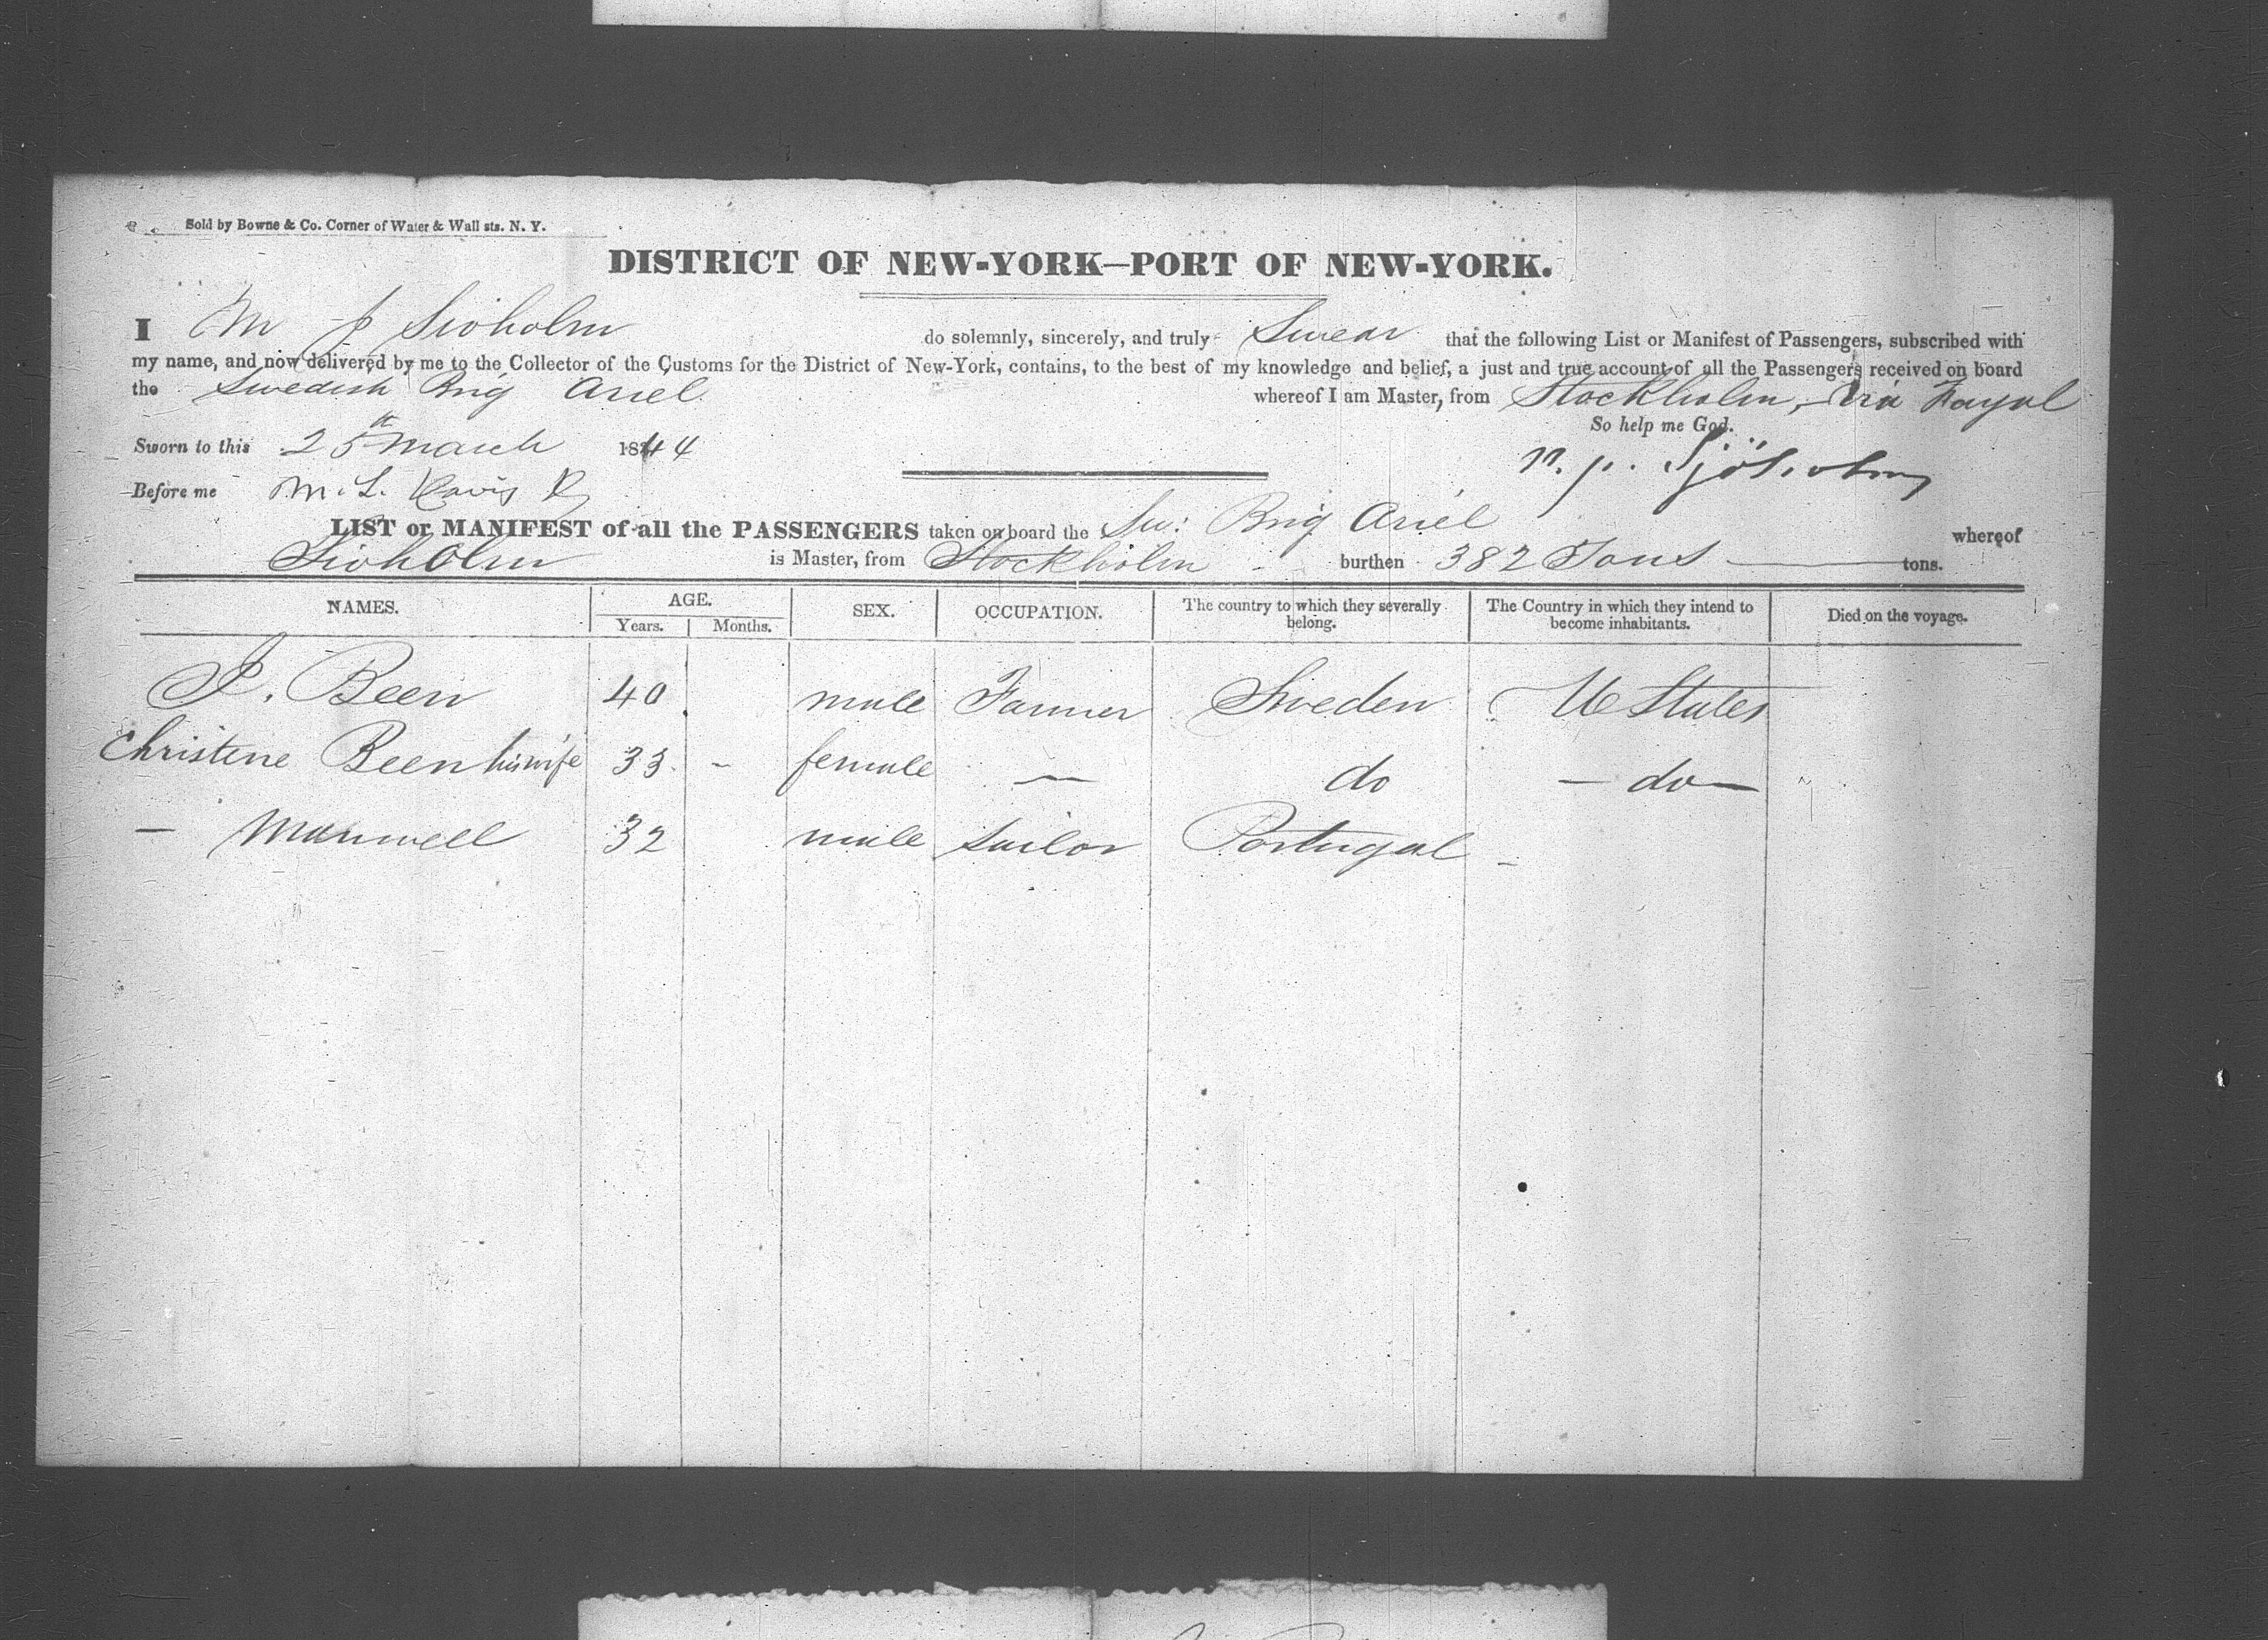 Sold by Bowne & Co. Corner of Water & Wall sts. N. Y.
DISTRICT OF NEW-YORK—PORT OF NEW-YORK.
I M J Sioholm do solemnly, sincerely, and truly Swear that the following List or Manifest of Passengers, subscribed with
my name, and now delivered by me to the Collector of the Customs for the District of New-York, contains, to the best of my knowledge and belief, a just and true account of all the Passengers received on board
the Swedish Brig Ariel whereof I am Master, from Stockholm, Via Fayal
So help me God.
Sworn to this 25th March 1844
n. p. Sjöholm
Before me M. L. Davis
LIST or MANIFEST of all the PASSENGERS taken on board the Sw: Brig Ariel whereof
Sioholm is Master, from Stockholm burthen 382 Tons — tons.
NAMES. AGE. Years. Months. SEX. OCCUPATION. The country to which they severally belong. The Country in which they intend to become inhabitants. Died on the voyage.
J. Been 40 male Farmer Sweden U States
Christine Been his wife 33 - female — do — do —
— Manwell 32 male Sailor Portugal -